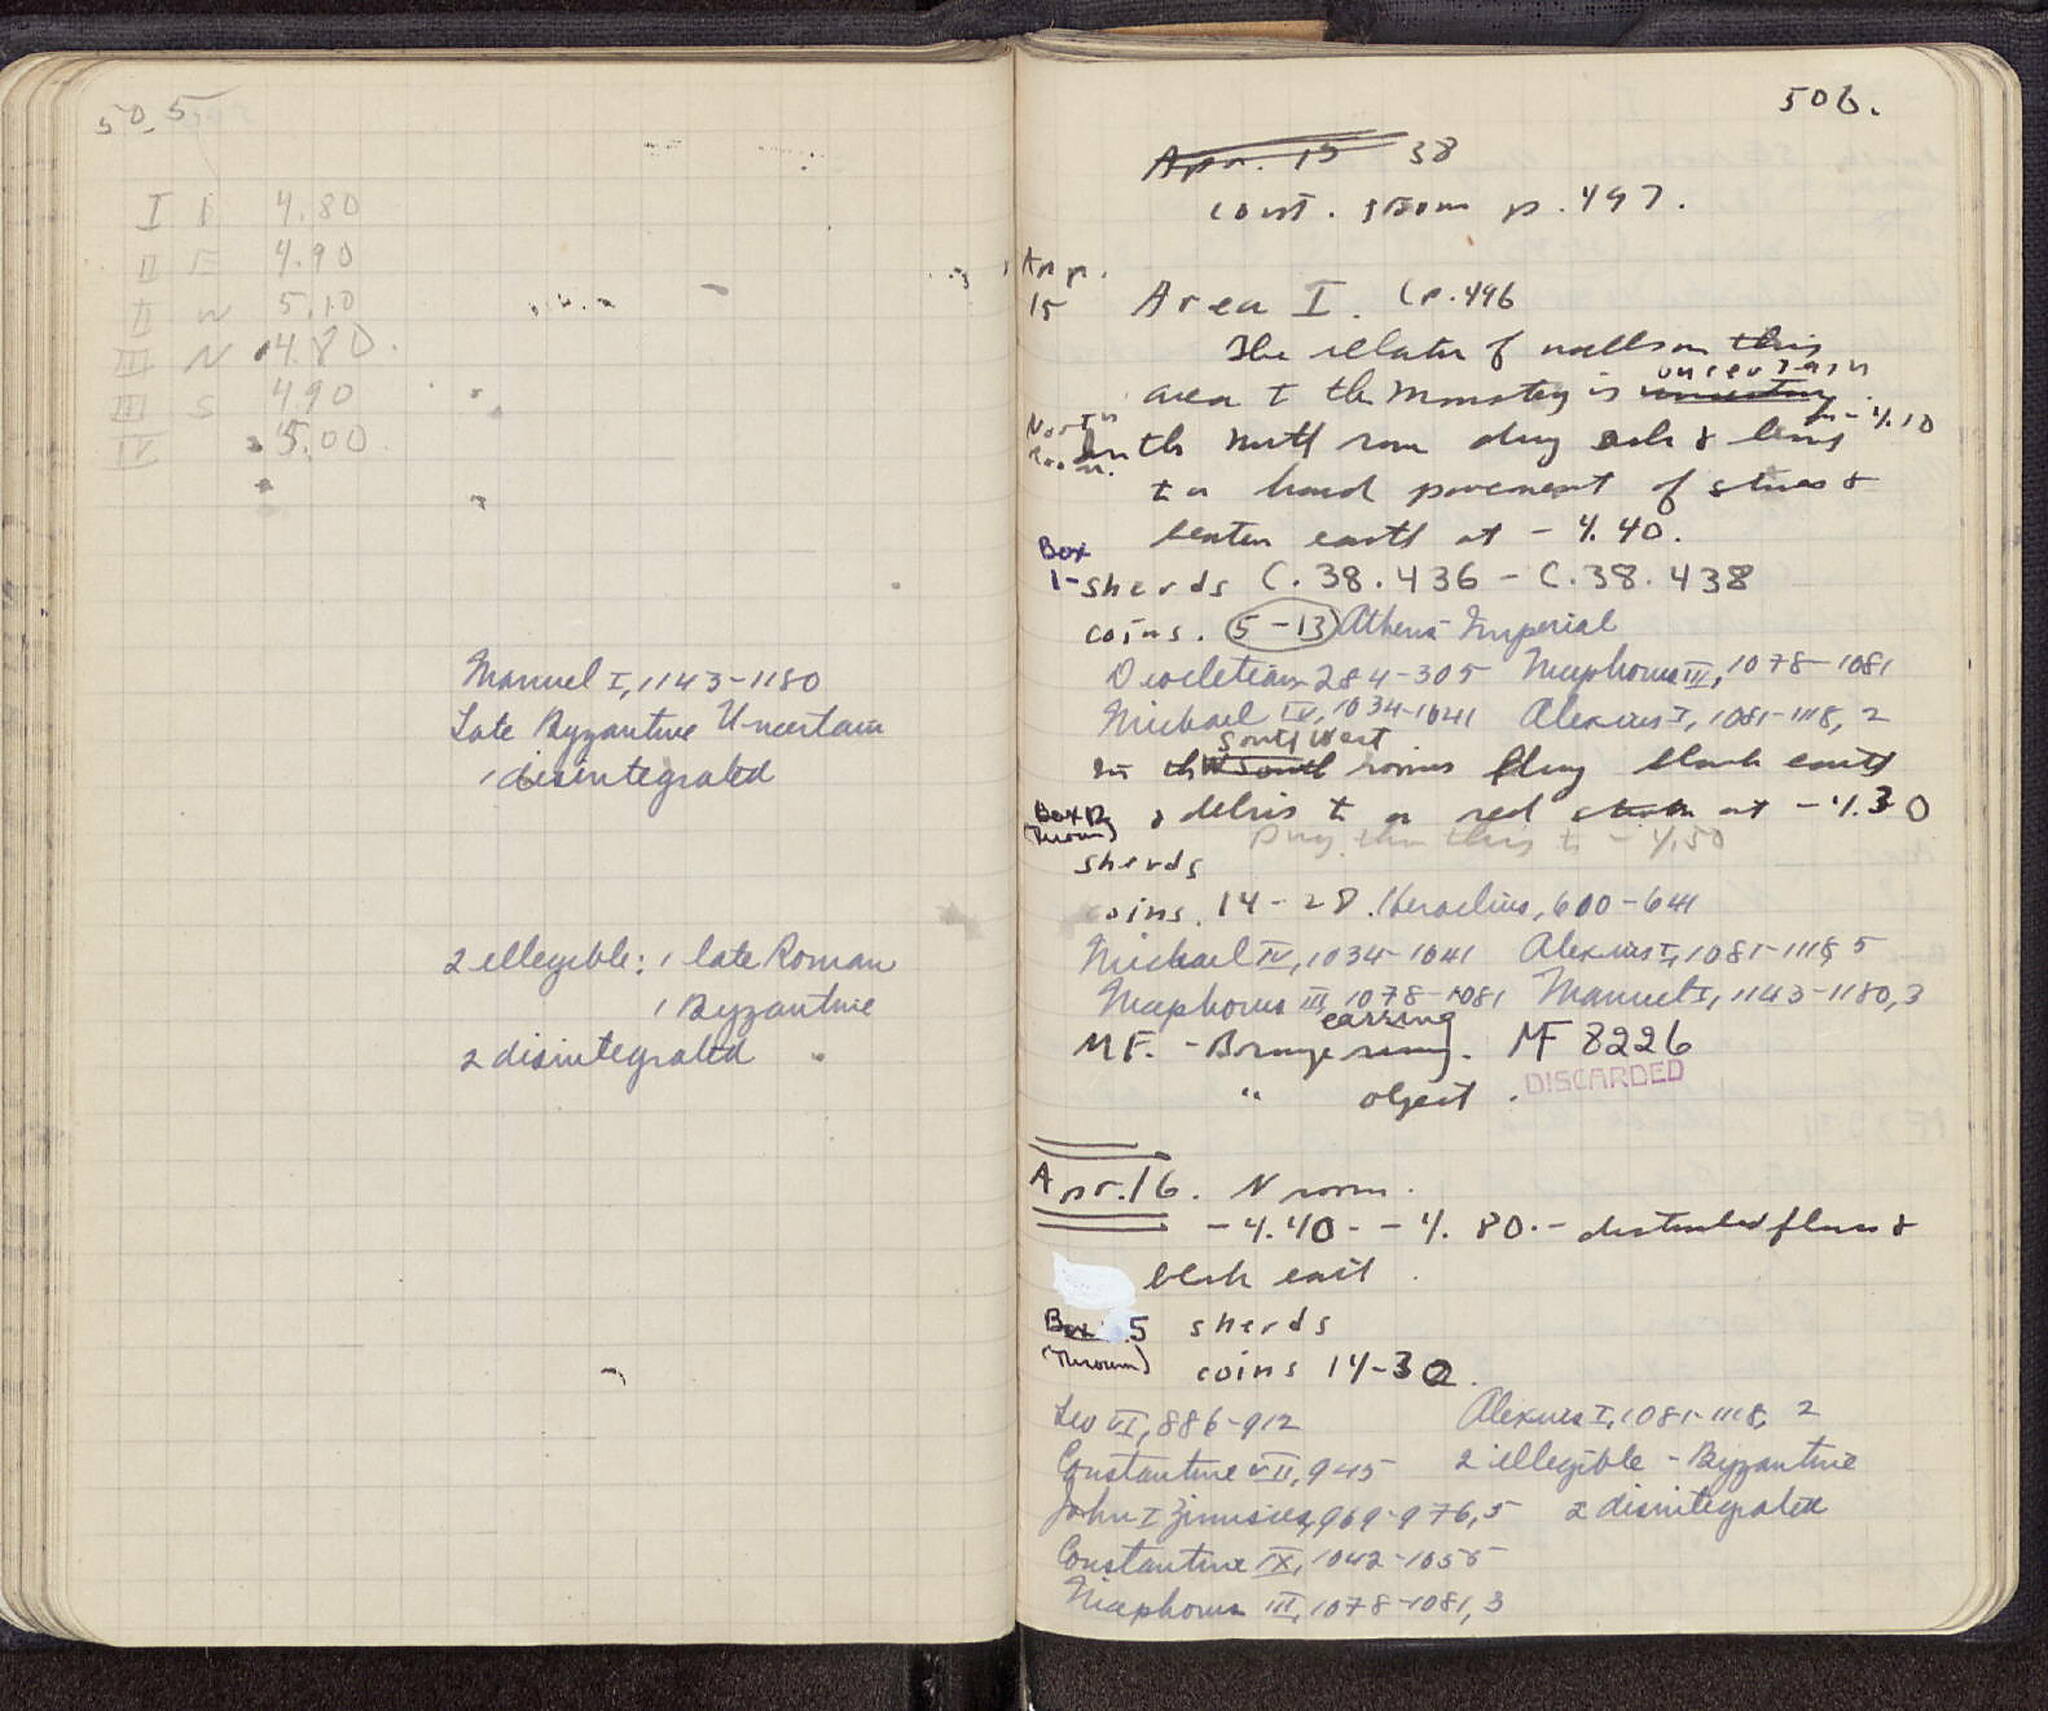 505
I 4.80
II E 4.90
II W 5.10
III N 4.80.
III S 4.90
IV 5.00
Manuel I, 1143-1180
Late Byzantine Uncertain
1 disintegrated
2 illegible: 1 late Roman
1 Byzantine
2 disintegrated
506.
Apr. 15 38
cont. from p. 497.
Apr.
15
Area I. (p. 496
The relation of walls in this
area to the monastery is uncertain.
North
Room.
In the north room dug ash & lime in -4.10
to a hard pavement of stones &
beaten earth at -4.40.
Box
1- sherds C.38.436 - C.38.438
coins. 5-13 Athens Imperial
Diocletian 284-305 Nicephorus III, 1078-1081
Michael IV, 1034-1041 Alexius I, 1081-1118, 2
In the South West rooms dug black earth
& debris to a red stratum at -4.30
Dug thru this to -4.50
Box 12
(Thrown)
sherds
coins. 14-28. Heraclius, 600-641
Michael IV, 1034-1041 Alexius I, 1081-1118, 5
Nicephorus III, 1078-1081 Manuel I, 1143-1180, 3
MF. - Bronze earring. MF 8226
" object. DISCARDED
Apr. 16. N room.
-4.40 - -4.80. - disturbed floors &
black earth.
Box 5 sherds
(Thrown)
coins 14-30.
Leo VI, 886-912 Alexius I, 1081-1118, 2
Constantine VII, 945 2 illegible - Byzantine
John I Zimisces, 969-976, 5 2 disintegrated
Constantine IX, 1042-1055
Nicephorus III, 1078-1081, 3